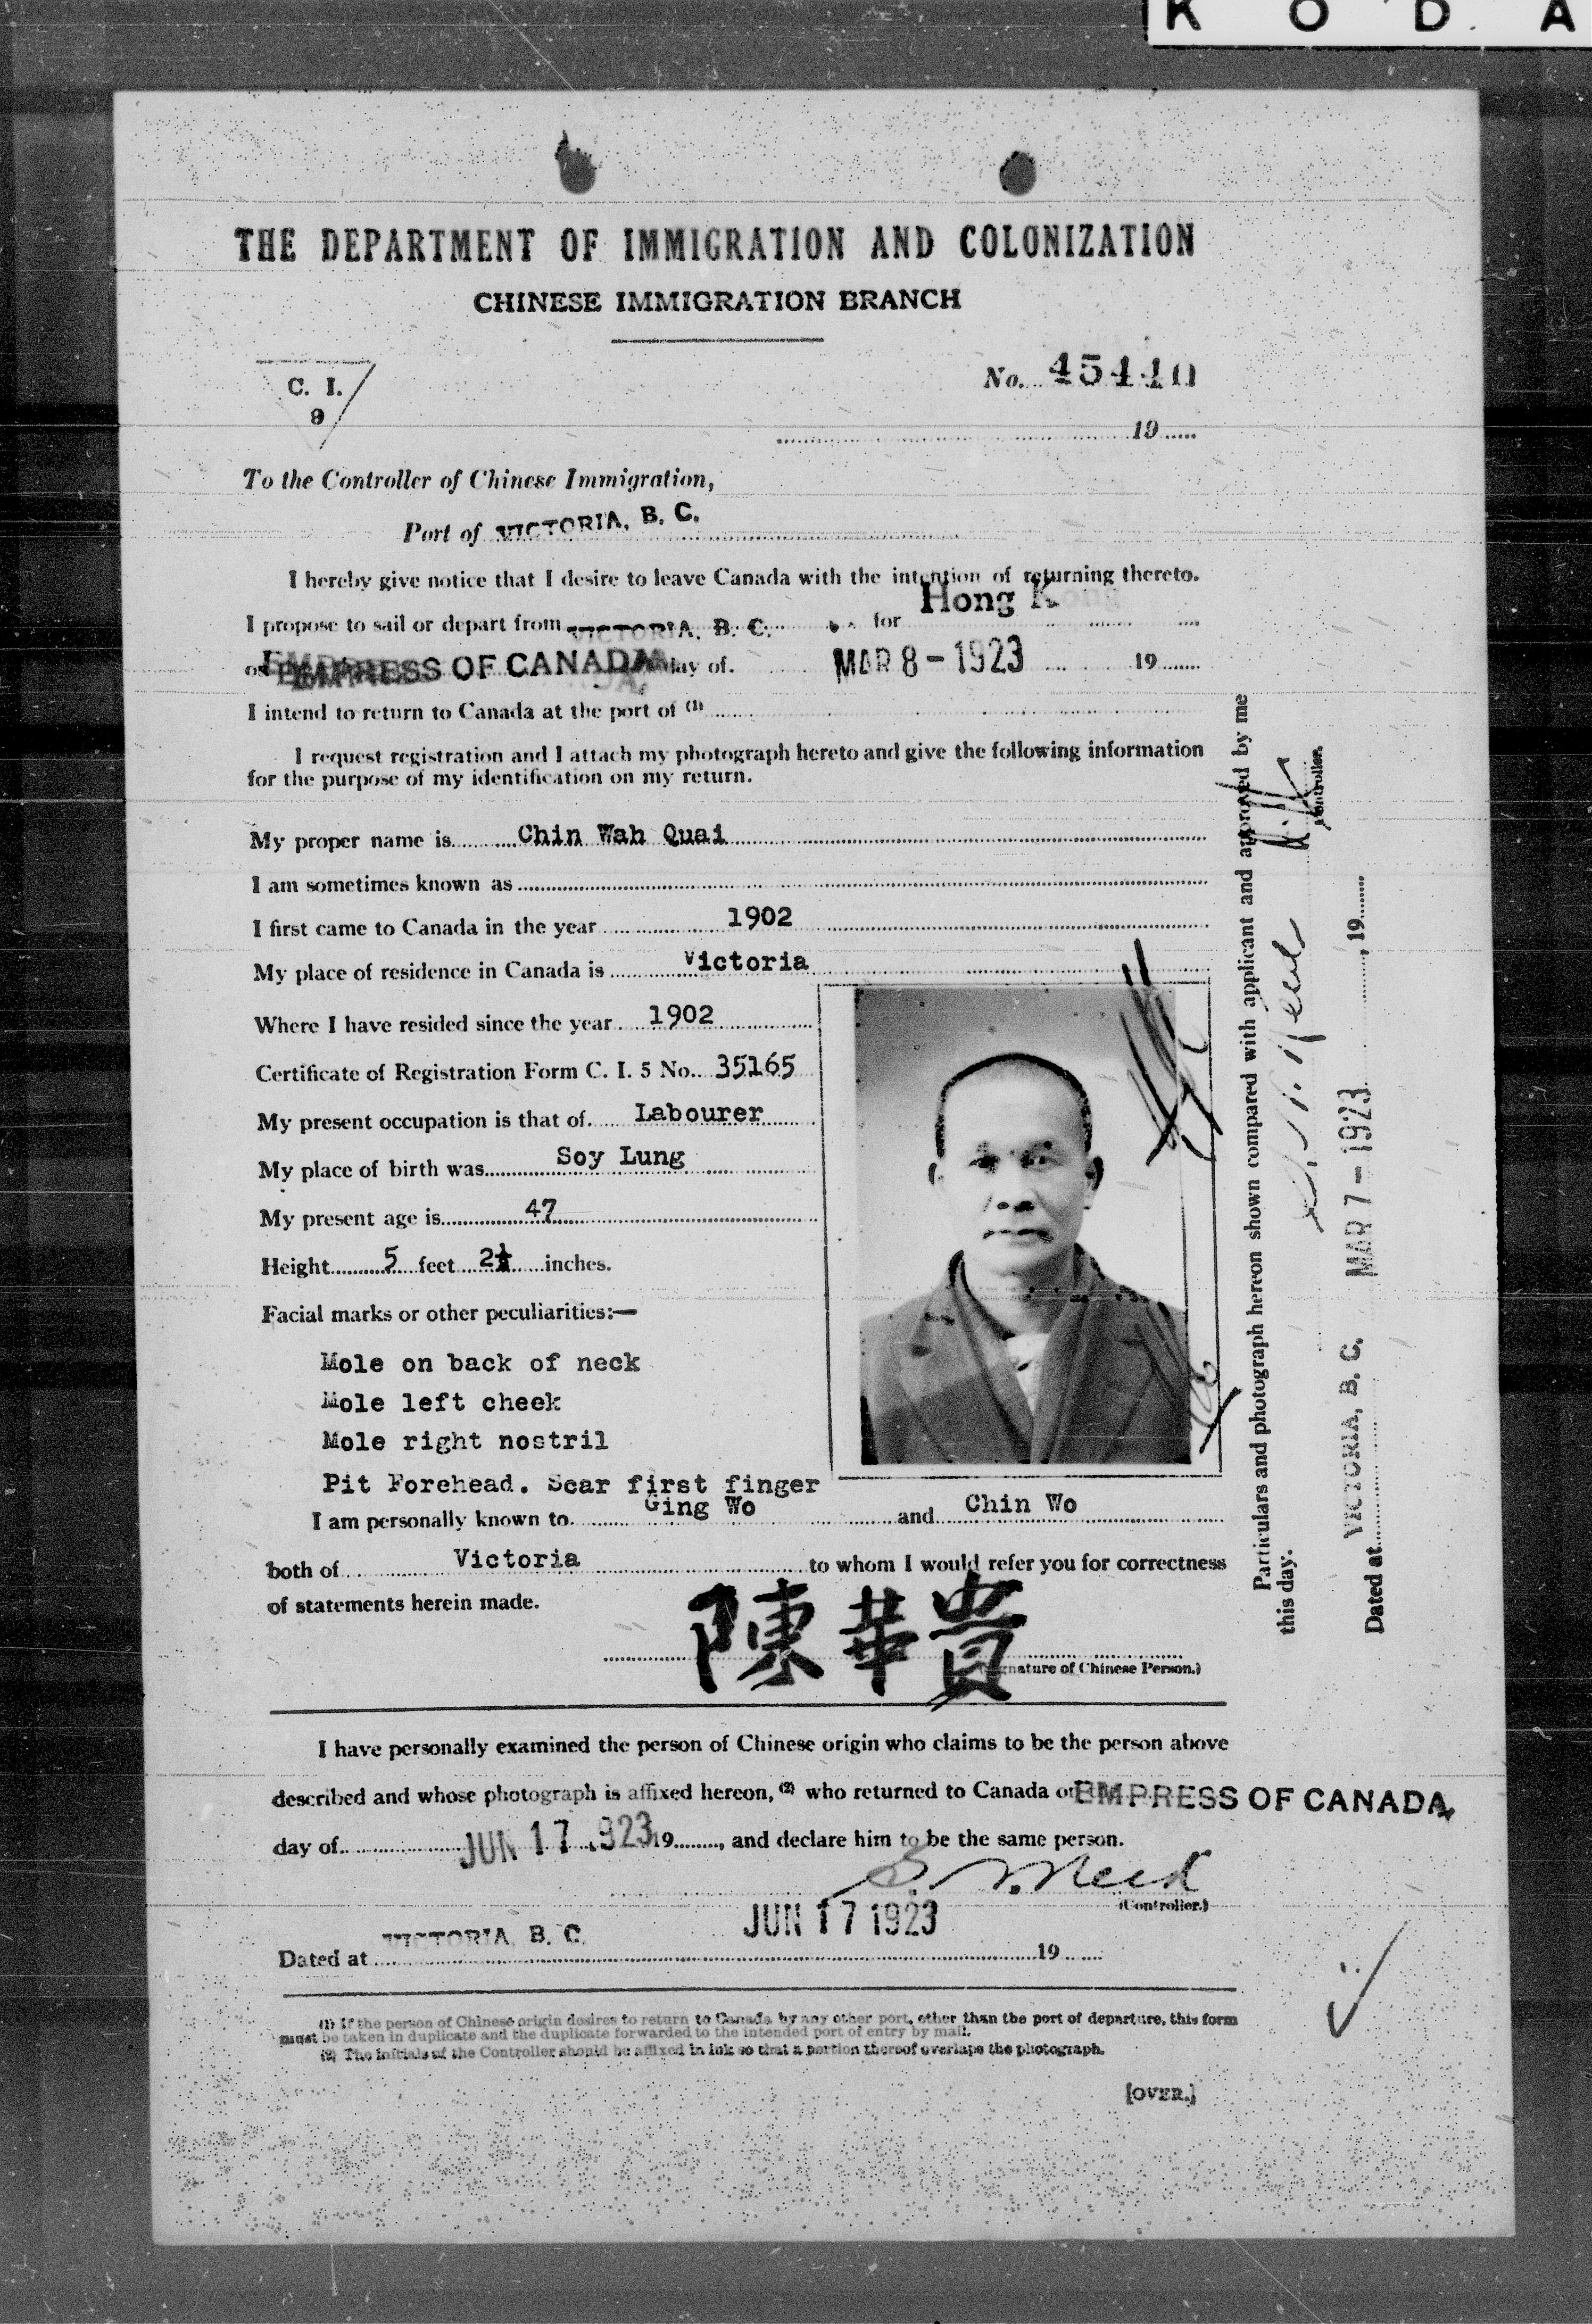 K O D A
THE DEPARTMENT OF IMMIGRATION AND COLONIZATION
CHINESE IMMIGRATION BRANCH
C. I.
9
No. 45440
19
To the Controller of Chinese Immigration,
Port of VICTORIA, B. C.
I hereby give notice that I desire to leave Canada with the intention of returning thereto.
I propose to sail or depart from VICTORIA, B. C. for Hong Kong
on EMPRESS OF CANADA day of MAR 8 - 1923 19
I intend to return to Canada at the port of (1)
I request registration and I attach my photograph hereto and give the following information
for the purpose of my identification on my return.
My proper name is Chin Wah Quai
I am sometimes known as
I first came to Canada in the year 1902
My place of residence in Canada is Victoria
Where I have resided since the year 1902
Certificate of Registration Form C. I. 5 No. 35165
My present occupation is that of Labourer
My place of birth was Soy Lung
My present age is 47
Height 5 feet 2½ inches.
Facial marks or other peculiarities:—
Mole on back of neck
Mole left cheek
Mole right nostril
Pit Forehead. Scar first finger
I am personally known to Ging Wo and Chin Wo
both of Victoria to whom I would refer you for correctness
of statements herein made.
陳華貴
(Signature of Chinese Person.)
I have personally examined the person of Chinese origin who claims to be the person above
described and whose photograph is affixed hereon, (2) who returned to Canada on EMPRESS OF CANADA
day of JUN 17 1923 19, and declare him to be the same person.
(Controller.)
JUN 17 1923
Dated at VICTORIA, B. C. 19
(1) If the person of Chinese origin desires to return to Canada by any other port, other than the port of departure, this form
must be taken in duplicate and the duplicate forwarded to the intended port of entry by mail.
(2) The initials of the Controller should be affixed in ink so that a portion thereof overlaps the photograph.
[OVER.]
Particulars and photograph hereon shown compared with applicant and approved by me
this day.
Controller.
Dated at VICTORIA, B. C. MAR 7 - 1923, 19